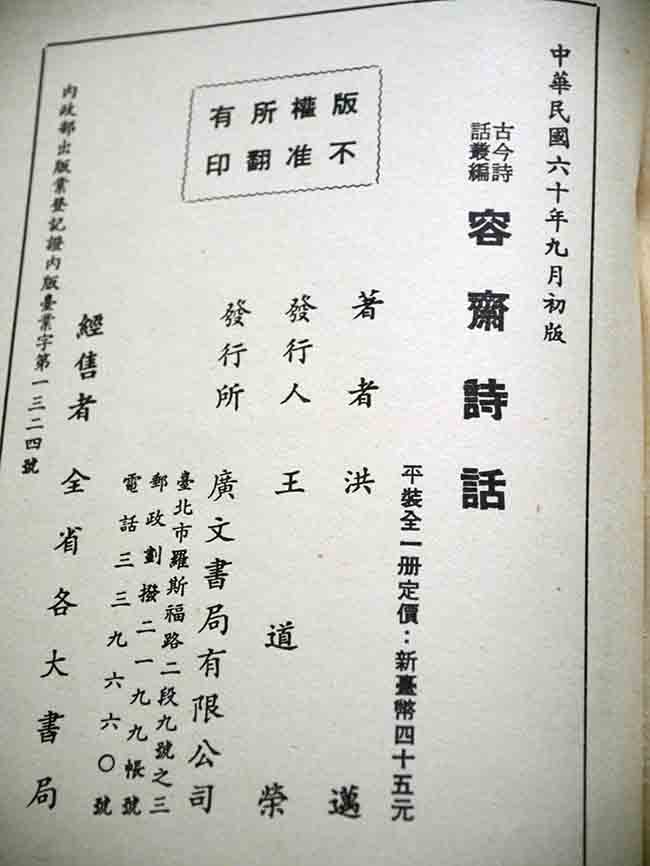 中華民國六十年九月初版
古今詩
話叢編
容齋詩話
平裝全一册定價：新臺幣四十五元
著者 洪邁
發行人 王道榮
發行所 廣文書局有限公司
臺北市羅斯福路二段九號之三
郵政劃撥二一九九帳號
電話三三九六六〇號
經售者 全省各大書局
內政部出版業登記證內版臺業字第一三二四號
版權所有
不准翻印